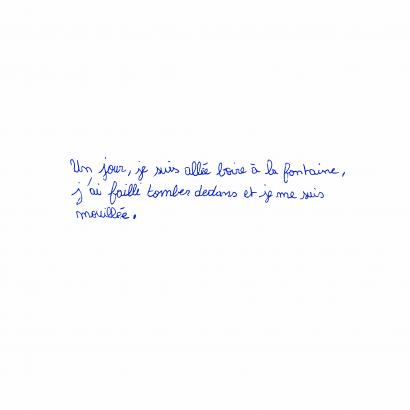 Un jour, je suis allée boire à la fontaine,
j'ai failli tomber dedans et je me suis
mouillée.